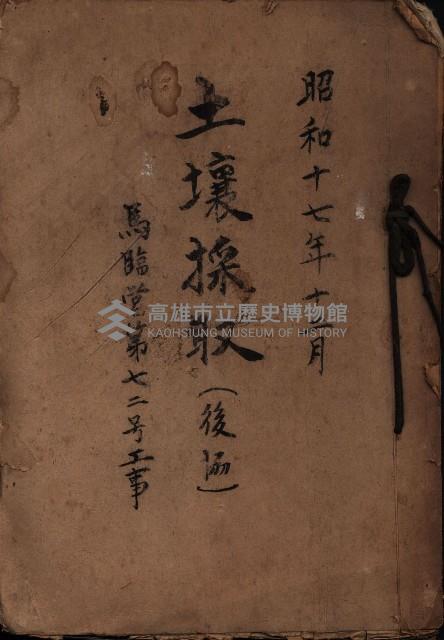 昭和十七年十二月
土壤採取(後協)
馬臨営第七二号工事
高雄市立歷史博物館
KAOHSIUNG MUSEUM OF HISTORY